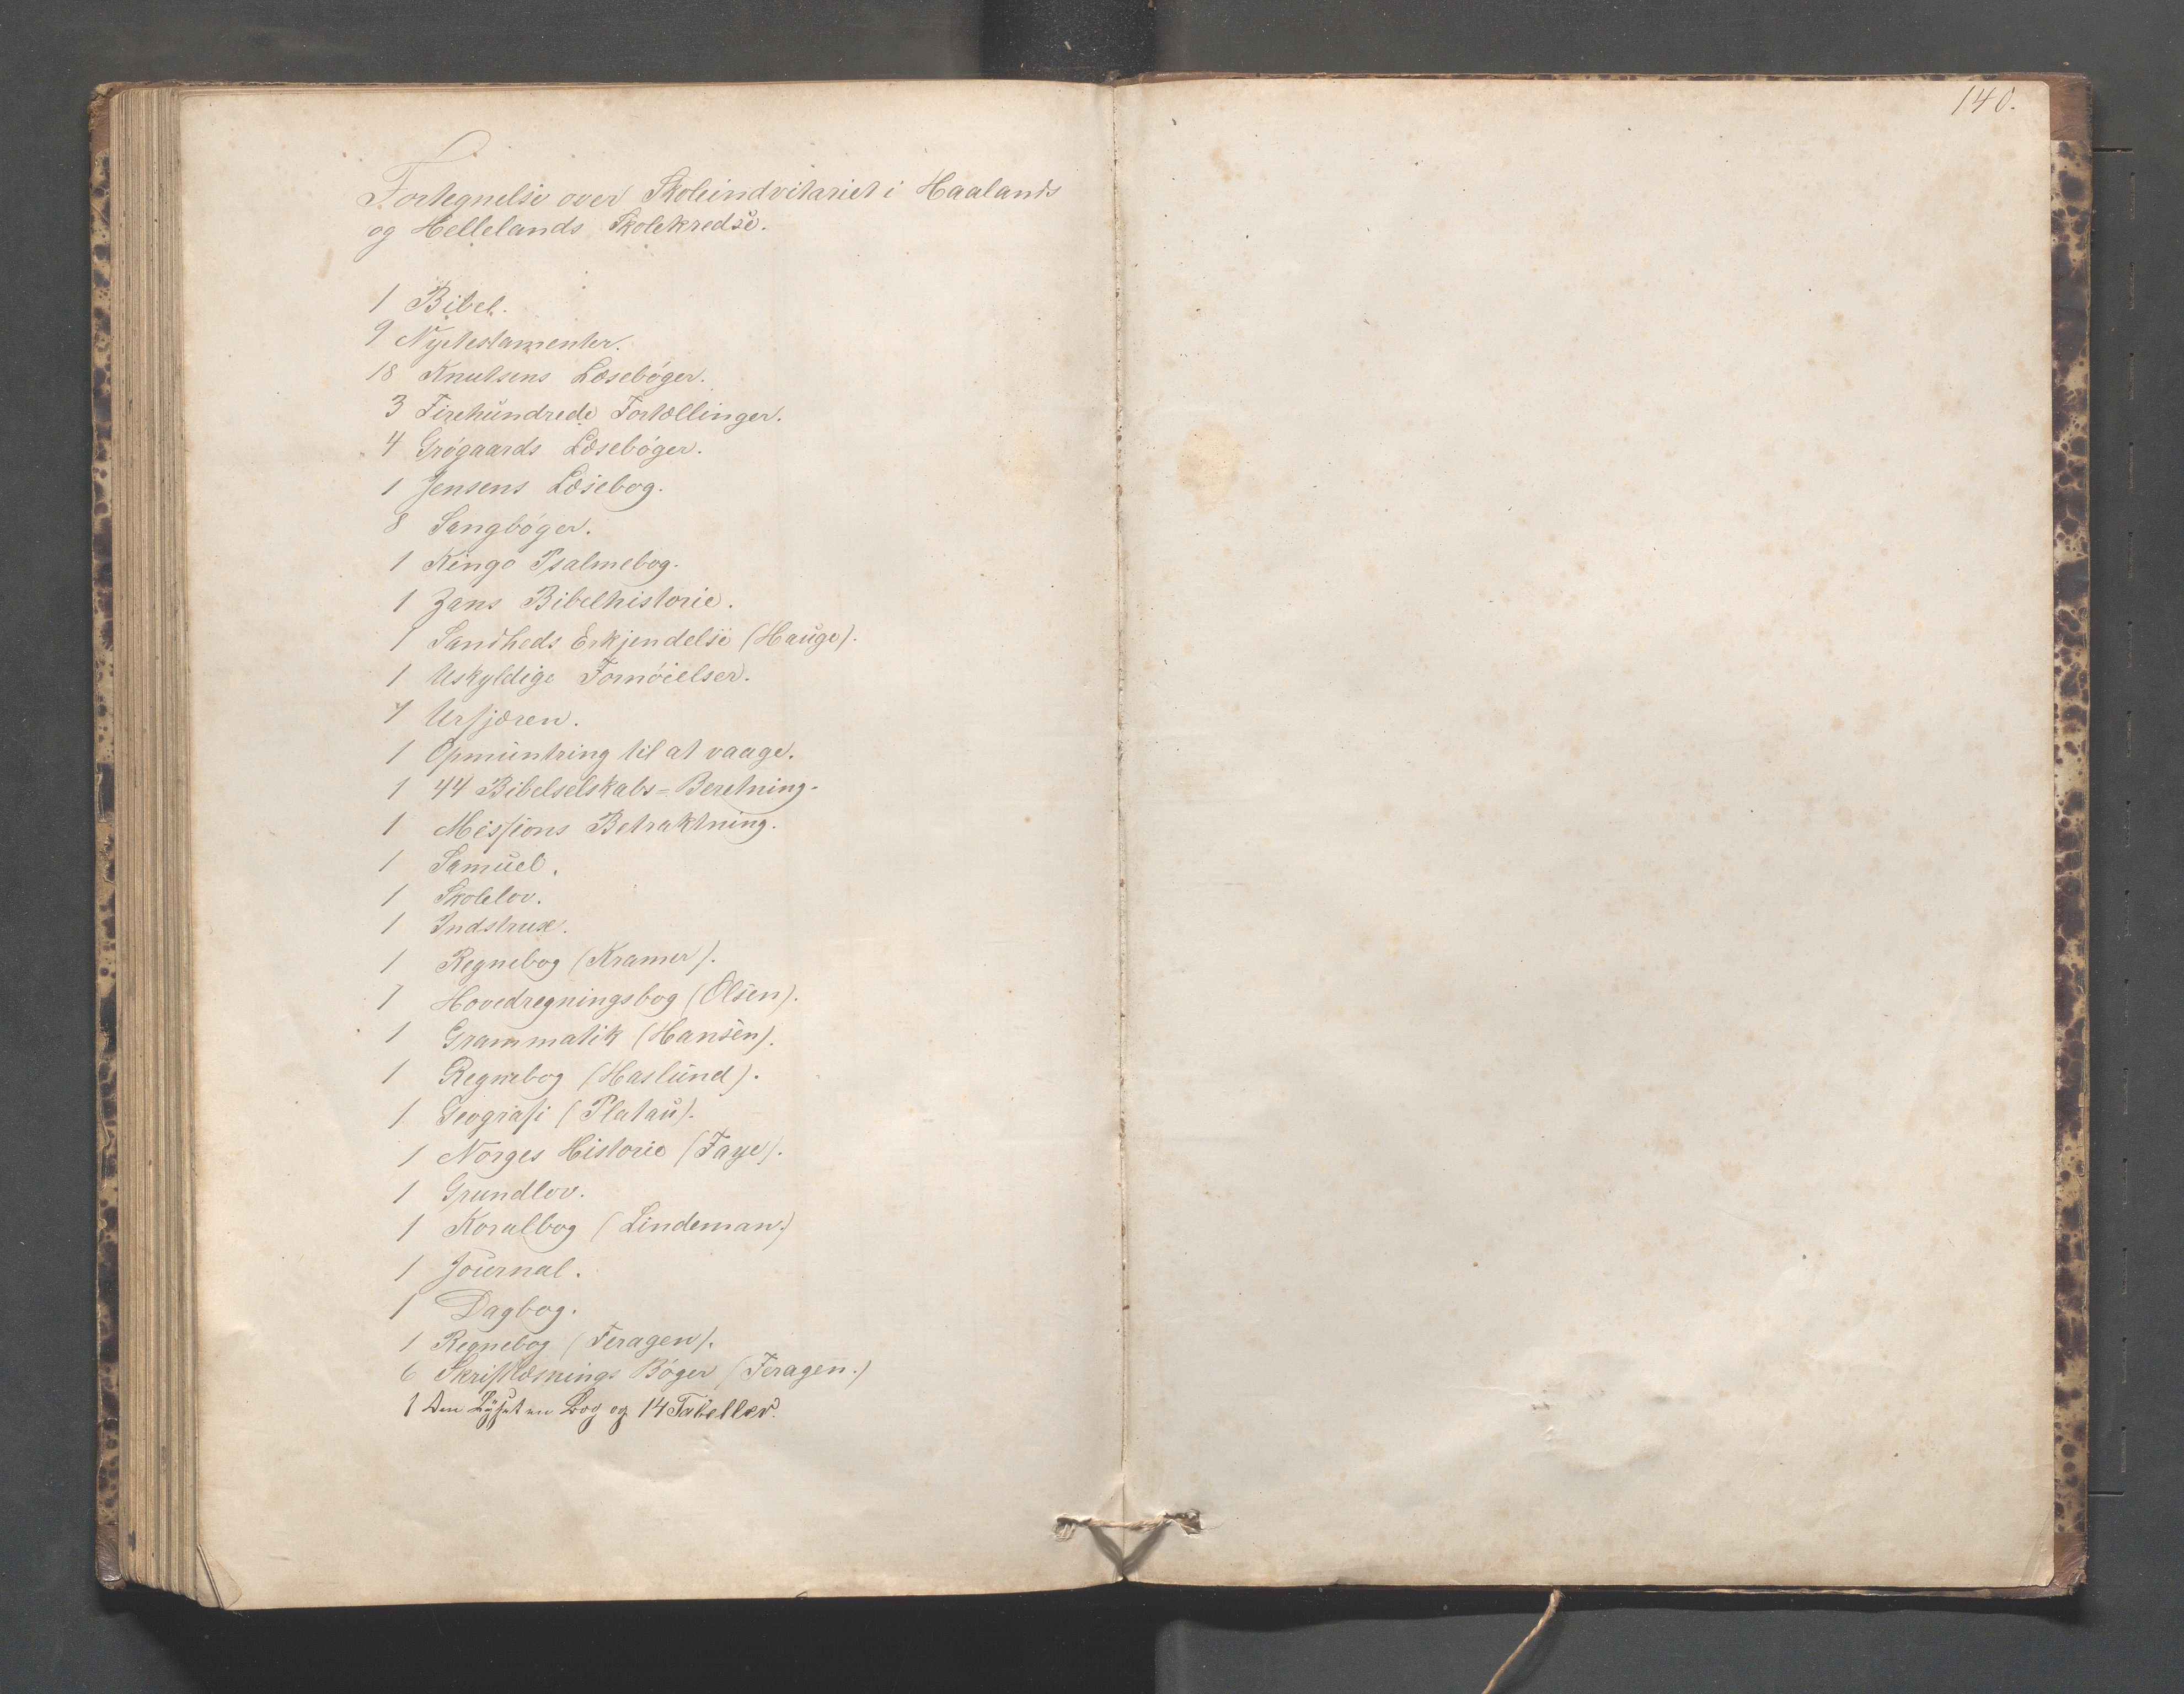 140.
Fortegnelse over Skoleindvitariet i Haalands
og Hellelands Skolekredse.
1 Bibel.
9 Nyetestamenter.
18 Knutsens Læsebøger.
3 Firehundrede Fortællinger.
4 Grøgaards Læsebøger.
1 Jensens Læsebog.
8 Sangbøger.
1 Kingo Psalmebog.
1 Zans Bibelhistorie.
1 Sandheds Erkjendelse (Hauge).
1 Uskyldige Fornøielser.
1 Urfjæren.
1 Opmuntring til at vaage.
1 44 Bibelselskabs=Beretning.
1 Missions Betraktning.
1 Samuel.
1 Skolelov.
1 Indstrux.
1 Regnebog (Kramer).
1 Hovedregningsbog (Olsen).
1 Grammatik (Hansen).
1 Regnebog (Haslund).
1 Geografi (Platau).
1 Norges Historie (Faye).
1 Grundlov.
1 Koralbog (Lindeman.)
1 Journal.
1 Dagbog.
1 Regnebog (Feragen).
6 Skriftlæsnings Bøger (Feragen.)
1 en Bog og 14 Tabeller.